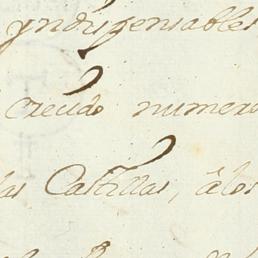 yndispensables
crecido numero
las Castillas, â los